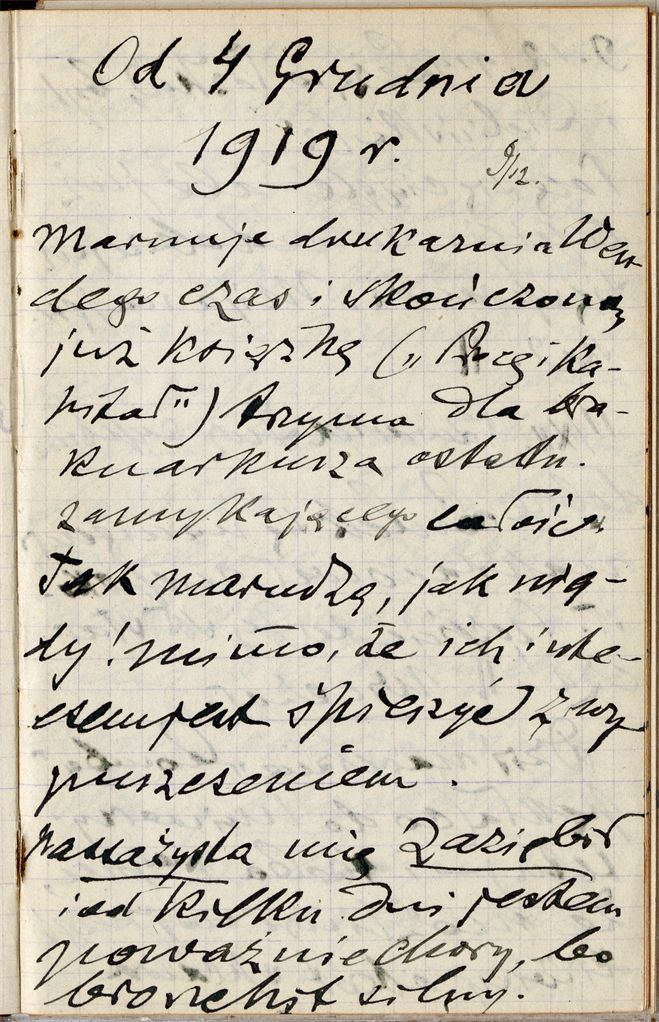 Od 4 Grudnia
1919 r.
9/12.
Marnuje drukarnia Wen-
dego czas i skończoną
już książkę („Pracę i Ka-
pitał") trzyma dla bra-
ku arkusza ostatn.
zamykającego całość.
Tak marudzą, jak nig-
dy! mimo, że ich inte-
resem jest śpieszyć z wy
puszczeniem.
Massażysta mię zaziębił
i od kilku dni jestem
poważnie chory, bo
bronchit silny.